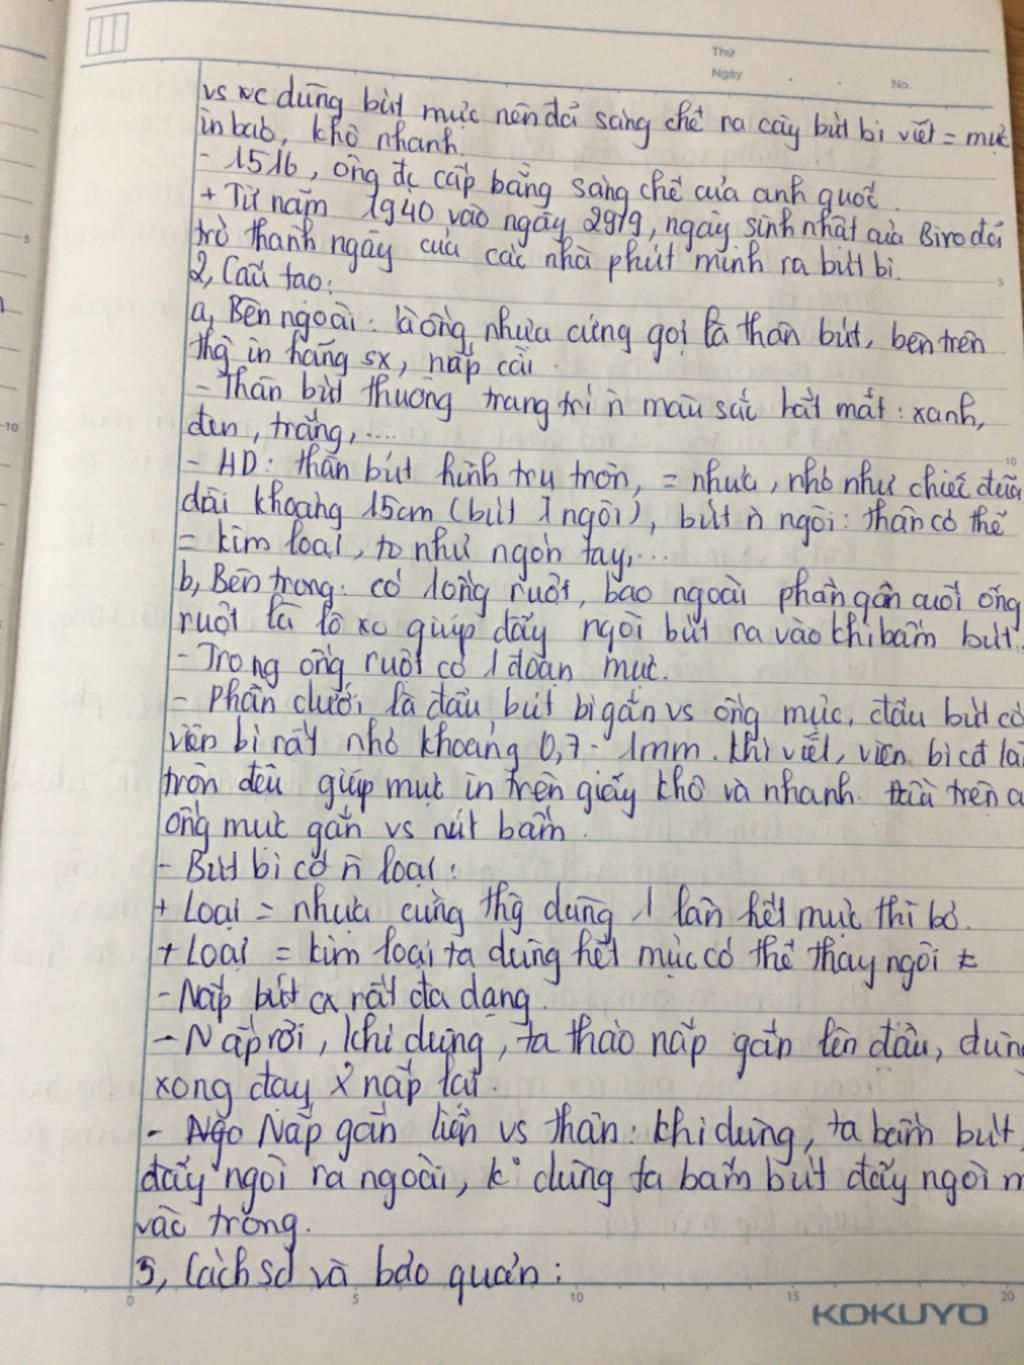 Thứ
Ngày
No.
vs vc dùng bút mực nên đã sáng chế ra cây bút bi viết = mực
in báo, khô nhanh.
- 1516, ông đc cấp bằng sáng chế của anh quốc.
+ Từ năm 1940 vào ngày 29/9, ngày sinh nhật của Biro đã
trở thành ngày của các nhà phát minh ra bút bi.
2, Cấu tạo:
a, Bên ngoài: là ống nhựa cứng gọi là thân bút, bên trên
thg in hãng sx, nắp cài.
- Thân bút thường trang trí n̄ màu sắc bắt mắt: xanh,
đen, trắng,....
- HD: thân bút hình trụ tròn, = nhựa, nhỏ như chiếc đũa
dài khoảng 15cm (bút 1 ngòi), bút n̄ ngòi: thân có thể
= kim loại, to như ngón tay,...
b, Bên trong: có 1 ống ruột, bao ngoài phần gần cuối ống
ruột là lò xo giúp đẩy ngòi bút ra vào khi bấm bút.
- Trong ống ruột có 1 đoạn mực.
- Phần dưới là đầu bút bi gắn vs ống mực, đầu bút có
viên bi rất nhỏ khoảng 0,7 - 1mm. Khi viết, viên bi cđ lăn
tròn đều giúp mực in trên giấy khô và nhanh. đầu trên c
ống mực gắn vs nút bấm.
- Bút bi có n̄ loại:
+ Loại = nhựa cứng thg dùng 1 lần hết mực thì bỏ.
+ Loại = kim loại ta dùng hết mực có thể thay ngòi
- Nắp bút cx rất đa dạng.
- Nắp rời, khi dùng, ta tháo nắp gắn lên đầu, dùng
xong đậy nắp lại.
- Nắp gắn liền vs thân: khi dùng, ta bấm bút,
đẩy ngòi ra ngoài, k° dùng ta bấm bút đẩy ngòi
vào trong.
3, Cách sd và bảo quản:
5
10
5
10
0
5
10
15
20
KOKUYO